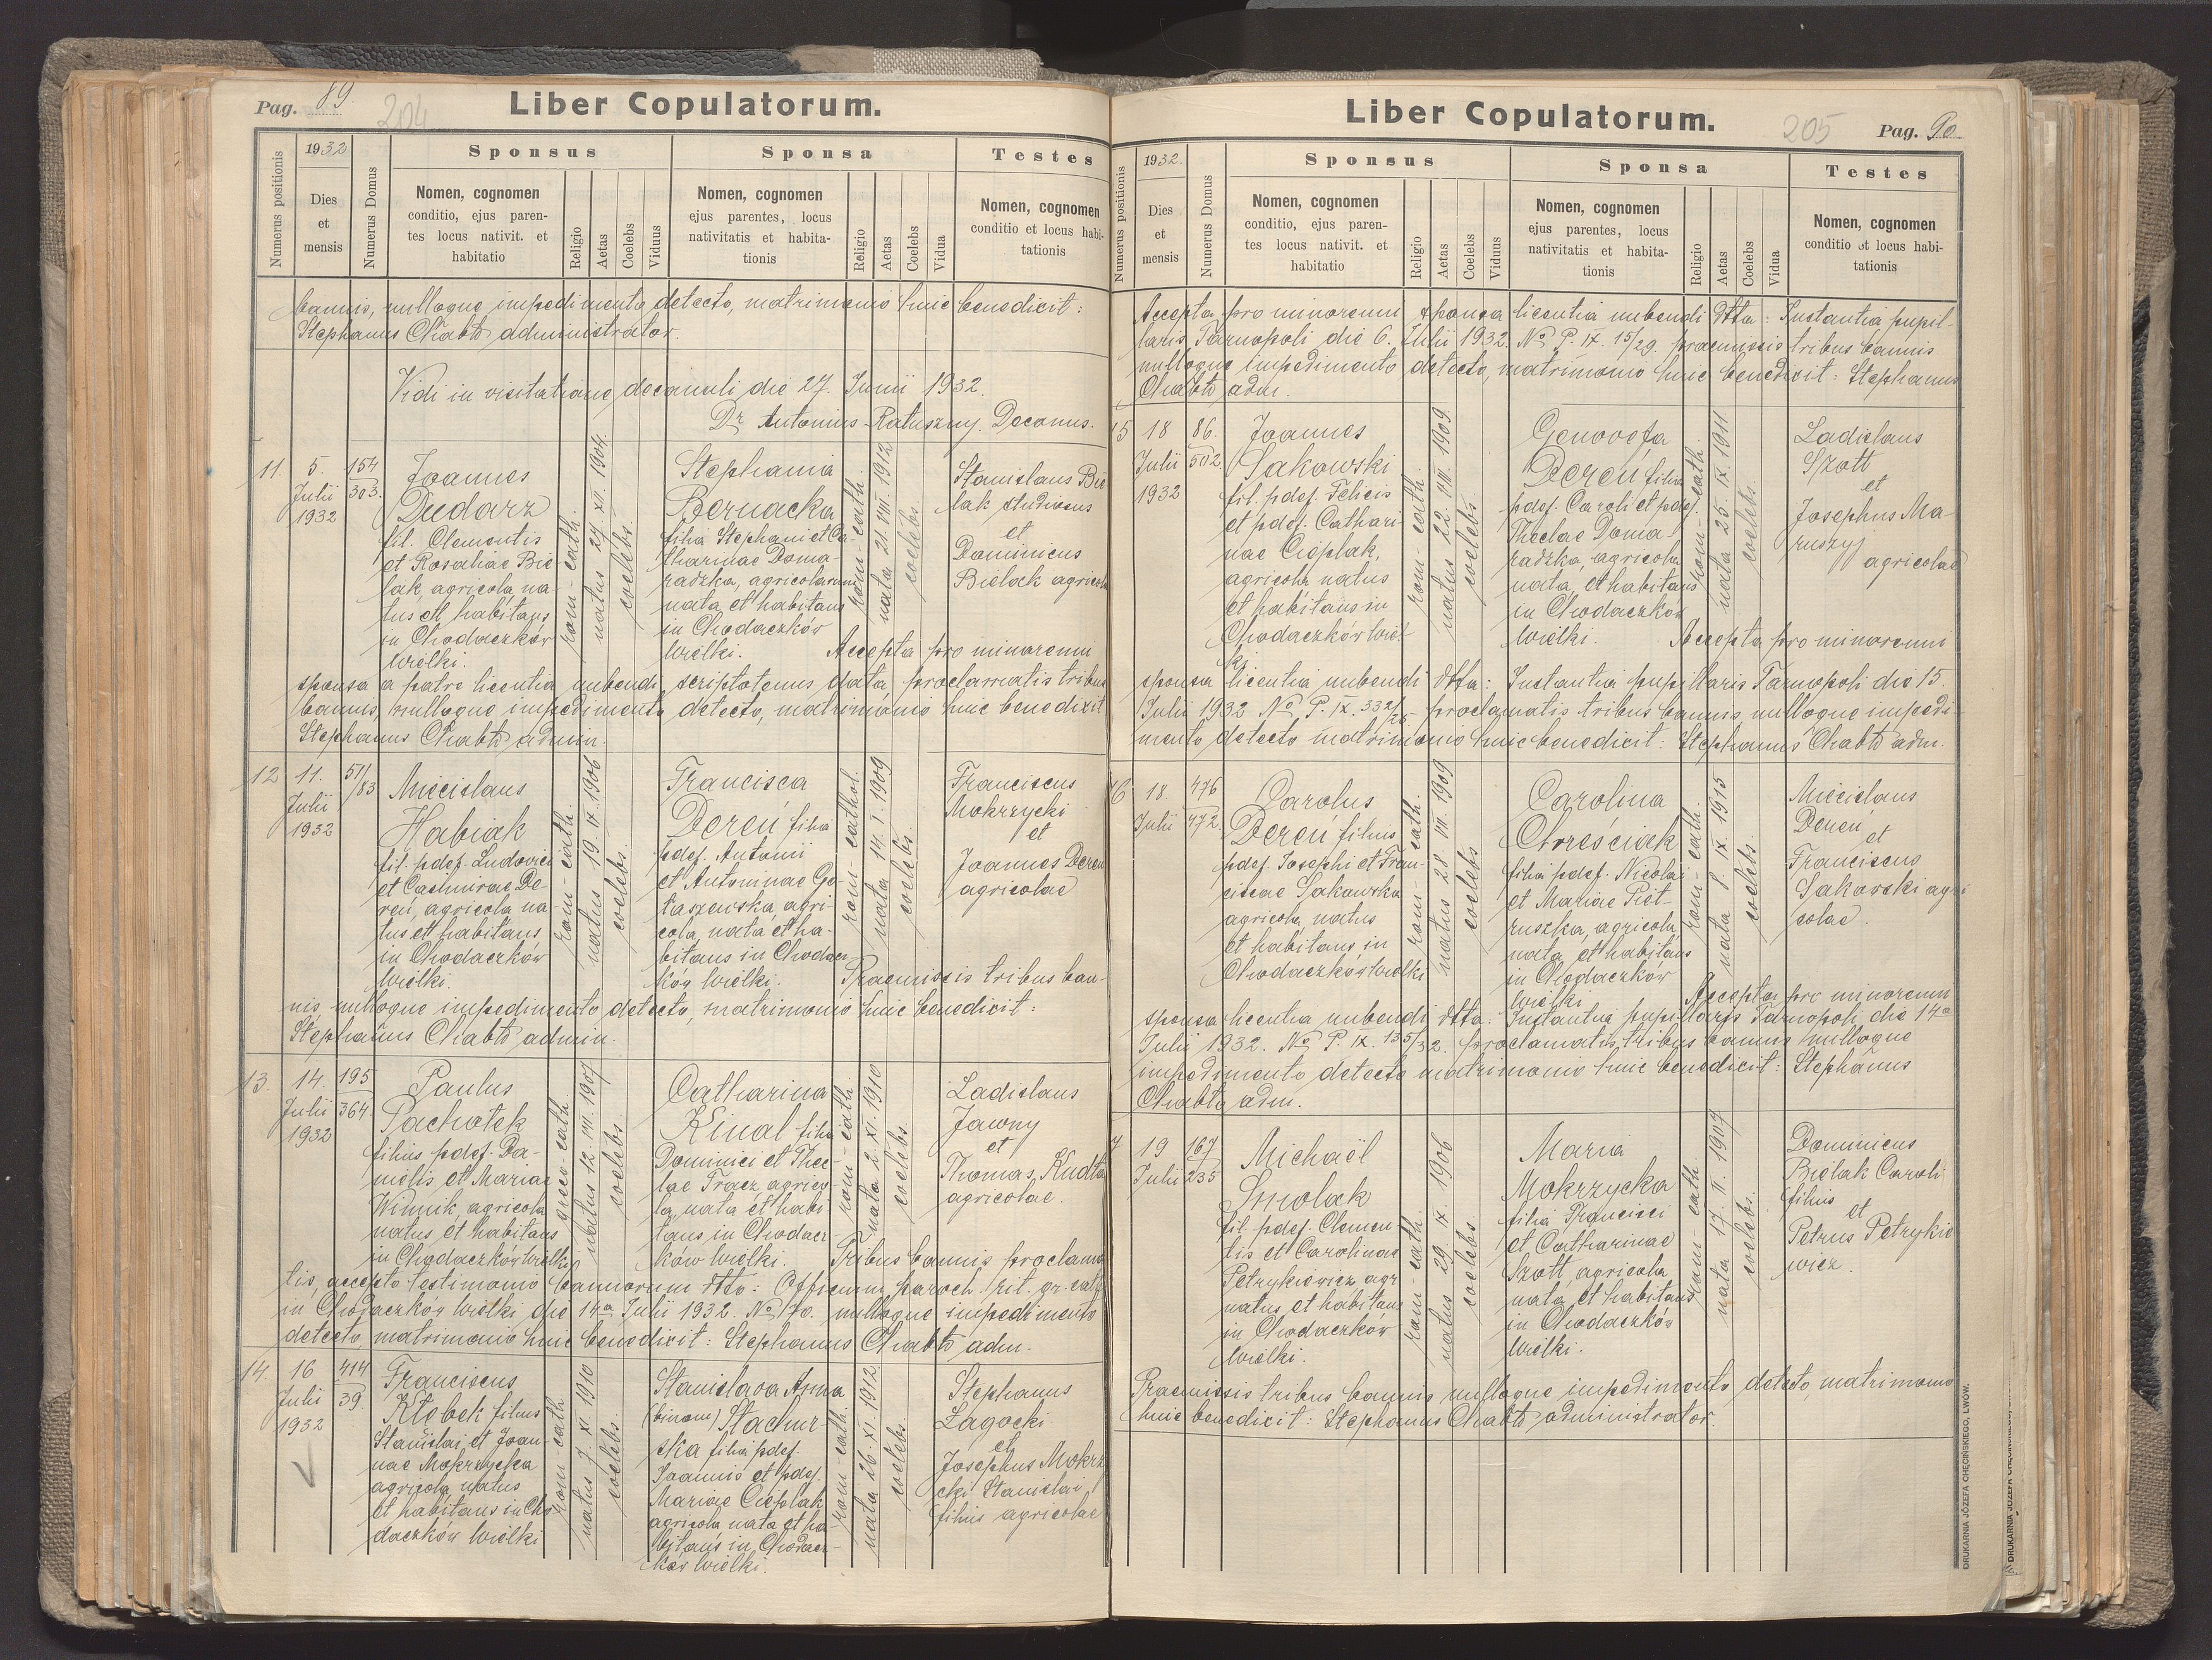 Pag. 89.
204
Liber Copulatorum.
Numerus positionis
1932
Dies
et
mensis
Numerus Domus
Sponsus
Nomen, cognomen
conditio, ejus paren-
tes locus nativit. et
habitatio
Religio
Aetas
Coelebs
Viduus
Sponsa
Nomen, cognomen
ejus parentes, locus
nativitatis et habita-
tionis
Religio
Aetas
Coelebs
Vidua
Testes
Nomen, cognomen
conditio et locus habi-
tationis
bannis, nulloque impedimento detecto, matrimonio huic benedicit:
Stephanus administrator.
Vidi in visitatione decanali die 27. Junii 1932.
Dr Antonius Ratuszny. Decanus.
11.
5.
Julii
1932
154
303.
Joannes
Dudarz
fil. Clementis
et Rosaliae Bie
lak, agricola, na
tus et habitans
in Chodaczków
wielki.
rom-cath.
natus 24. XII. 1904.
coelebs.
Stephania
Bernacka
filia Stephani et Ca-
tharinae Doma-
radzka, agricolarum
nata et habitans
in Chodaczków
wielki.
rom-cath.
nata 21. VIII. 1912
coelebs.
Stanislaus Bie
lak studiosus
et
Dominicus
Bielak agricola
Accepta pro minorenni
sponsa a patre licentia nubendi scriptotenus data, proclamatis tribus
bannis, nulloque impedimento detecto, matrimonio huic benedixit
Stephanus admin.
12
11.
Julii
1932
51/83
Miecislaus
Habiak
fil. pdef. Ludovici
et Casimirae De-
reń, agricola na-
tus et habitans
in Chodaczków
wielki.
rom-cath.
natus 19. IX. 1906
coelebs.
Francisca
Dereń filia
pdef. Antonii
et Antoninae Go-
taszewska, agri-
cola, nata et ha-
bitans in Chodacz-
ków wielki.
rom-cathol.
nata 14. I. 1909
coelebs.
Franciscus
Mokrzycki
et
Joannes Dereń
agricolae
Praemissis tribus ban-
nis, nulloque impedimento detecto, matrimonio huic benedicit:
Stephanus admin.
13.
14.
Julii
1932
195
364.
Paulus
Pachołek
filius pdef. Da-
nielis et Mariae
Winnik, agricola
natus et habitans
in Chodaczków wielki
graeco-cath.
natus 12. VII. 1907
coelebs.
Catharina
Kinal filia
Dominici et Thec-
lae Tracz, agrico-
la, nata et habi-
tans in Chodacz-
ków wielki.
rom-cath.
nata 2. XI. 1910
coelebs.
Ladislaus
Jawny
et
Thomas Kudła
agricolae.
Tribus bannis proclama
tis, accepto testimonio bannorum dtto: Officium paroch. rit. gr. cath
in Chodaczków wielki die 14a Julii 1932. No 170. nulloque impedimento
detecto, matrimonio huic benedicit: Stephanus adm.
14.
16
Julii
1932
414
39.
Franciscus
Kłobek filius
Stanislai et Joan-
nae Mokrzycka
agricola, natus
et habitans in Cho
daczków wielki
rom-cath.
natus 7. XI. 1910
coelebs.
Stanislava Anna
(binom) Stachur-
ska filia pdef.
Joannis et pdef.
Mariae Cieplak
agricola nata et ha-
bitans in Chodacz-
ków wielki.
rom-cath.
nata 26. XI. 1912.
coelebs.
Stephanus
Łagocki
et
Josephus Mokrzy
cki Stanislai
filius agricolae
Liber Copulatorum.
205
Pag. 90
Numerus positionis
1932.
Dies
et
mensis
Numerus Domus
Sponsus
Nomen, cognomen
conditio, ejus paren-
tes locus nativit. et
habitatio
Religio
Aetas
Coelebs
Viduus
Sponsa
Nomen, cognomen
ejus parentes, locus
nativitatis et habita-
tionis
Religio
Aetas
Coelebs
Vidua
Testes
Nomen, cognomen
conditio et locus habi-
tationis
Accepta pro minorenni sponsa licentia nubendi dtta: Instantia pupil-
laris Tarnopoli die 6. Julii 1932. No P. IX. 15/29. praemissis tribus bannis
nulloque impedimento detecto, matrimonio huic benedicit: Stephanus
adm.
15
18
Julii
1932
86.
502.
Joannes
Sakowski
fil. pdef. Felicis
et pdef. Cathari-
nae Cieplak,
agricola natus
et habitans in
Chodaczków wiel-
ki.
rom-cath.
natus 22. VIII. 1909.
coelebs.
Genovefa
Dereń filia
pdef. Caroli et pdef.
Theclae Doma-
radzka, agricola
nata et habitans
in Chodaczków
wielki.
rom-cath.
nata 25. IX. 1911
coelebs.
Ladislaus
Szott
et
Josephus Ma-
ruszy
agricolae
Accepta pro minorenni
sponsa licentia nubendi dtta: Instantia pupillaris Tarnopoli die 15.
Julii 1932 No P. IX. 332/25 - proclamatis tribus bannis nulloque impedi-
mento detecto matrimonio huic benedicit: Stephanus adm.
16
18.
Julii
476
472.
Carolus
Dereń filius
pdef. Josephi et Fran-
ciscae Sakowska
agricola, natus
et habitans in
Chodaczków wielki
rom-cath.
natus 28. VII. 1909
coelebs
Carolina
Chrześciek
filia pdef. Nicolai
et Mariae Piet-
ruszka, agricola
nata et habitans
in Chodaczków
wielki
rom-cath.
nata 8. IX. 1915
coelebs.
Miecislaus
Dereń
et
Franciscus
Sakowski agri
colae.
Accepta pro minorenni
sponsa licentia nubendi dtta: Instantia pupillaris Tarnopoli die 14a
Julii 1932. No P. IX. 135/32. proclamatis tribus bannis nulloque
impedimento detecto matrimonio huic benedicit: Stephanus
adm.
7
19
Julii
167
235
Michaël
Smolak
fil. pdef. Clemen-
tis et Carolinae
Petrykiewicz agr.
natus et habitans
in Chodaczków
wielki.
rom-cath.
natus 29. IX. 1906
coelebs
Maria
Mokrzycka
filia Francisci
et Catharinae
Szott, agricola
nata et habitans
in Chodaczków
wielki.
rom-cath.
nata 17. II. 1907
coelebs.
Dominicus
Bielak Caroli
filius
et
Petrus Petrykie
wicz.
Praemissis tribus bannis nulloque impedimento detecto, matrimonio
huic benedicit: Stephanus administrator.
DRUKARNIA JÓZEFA CHĘCIŃSKIEGO, LWÓW.